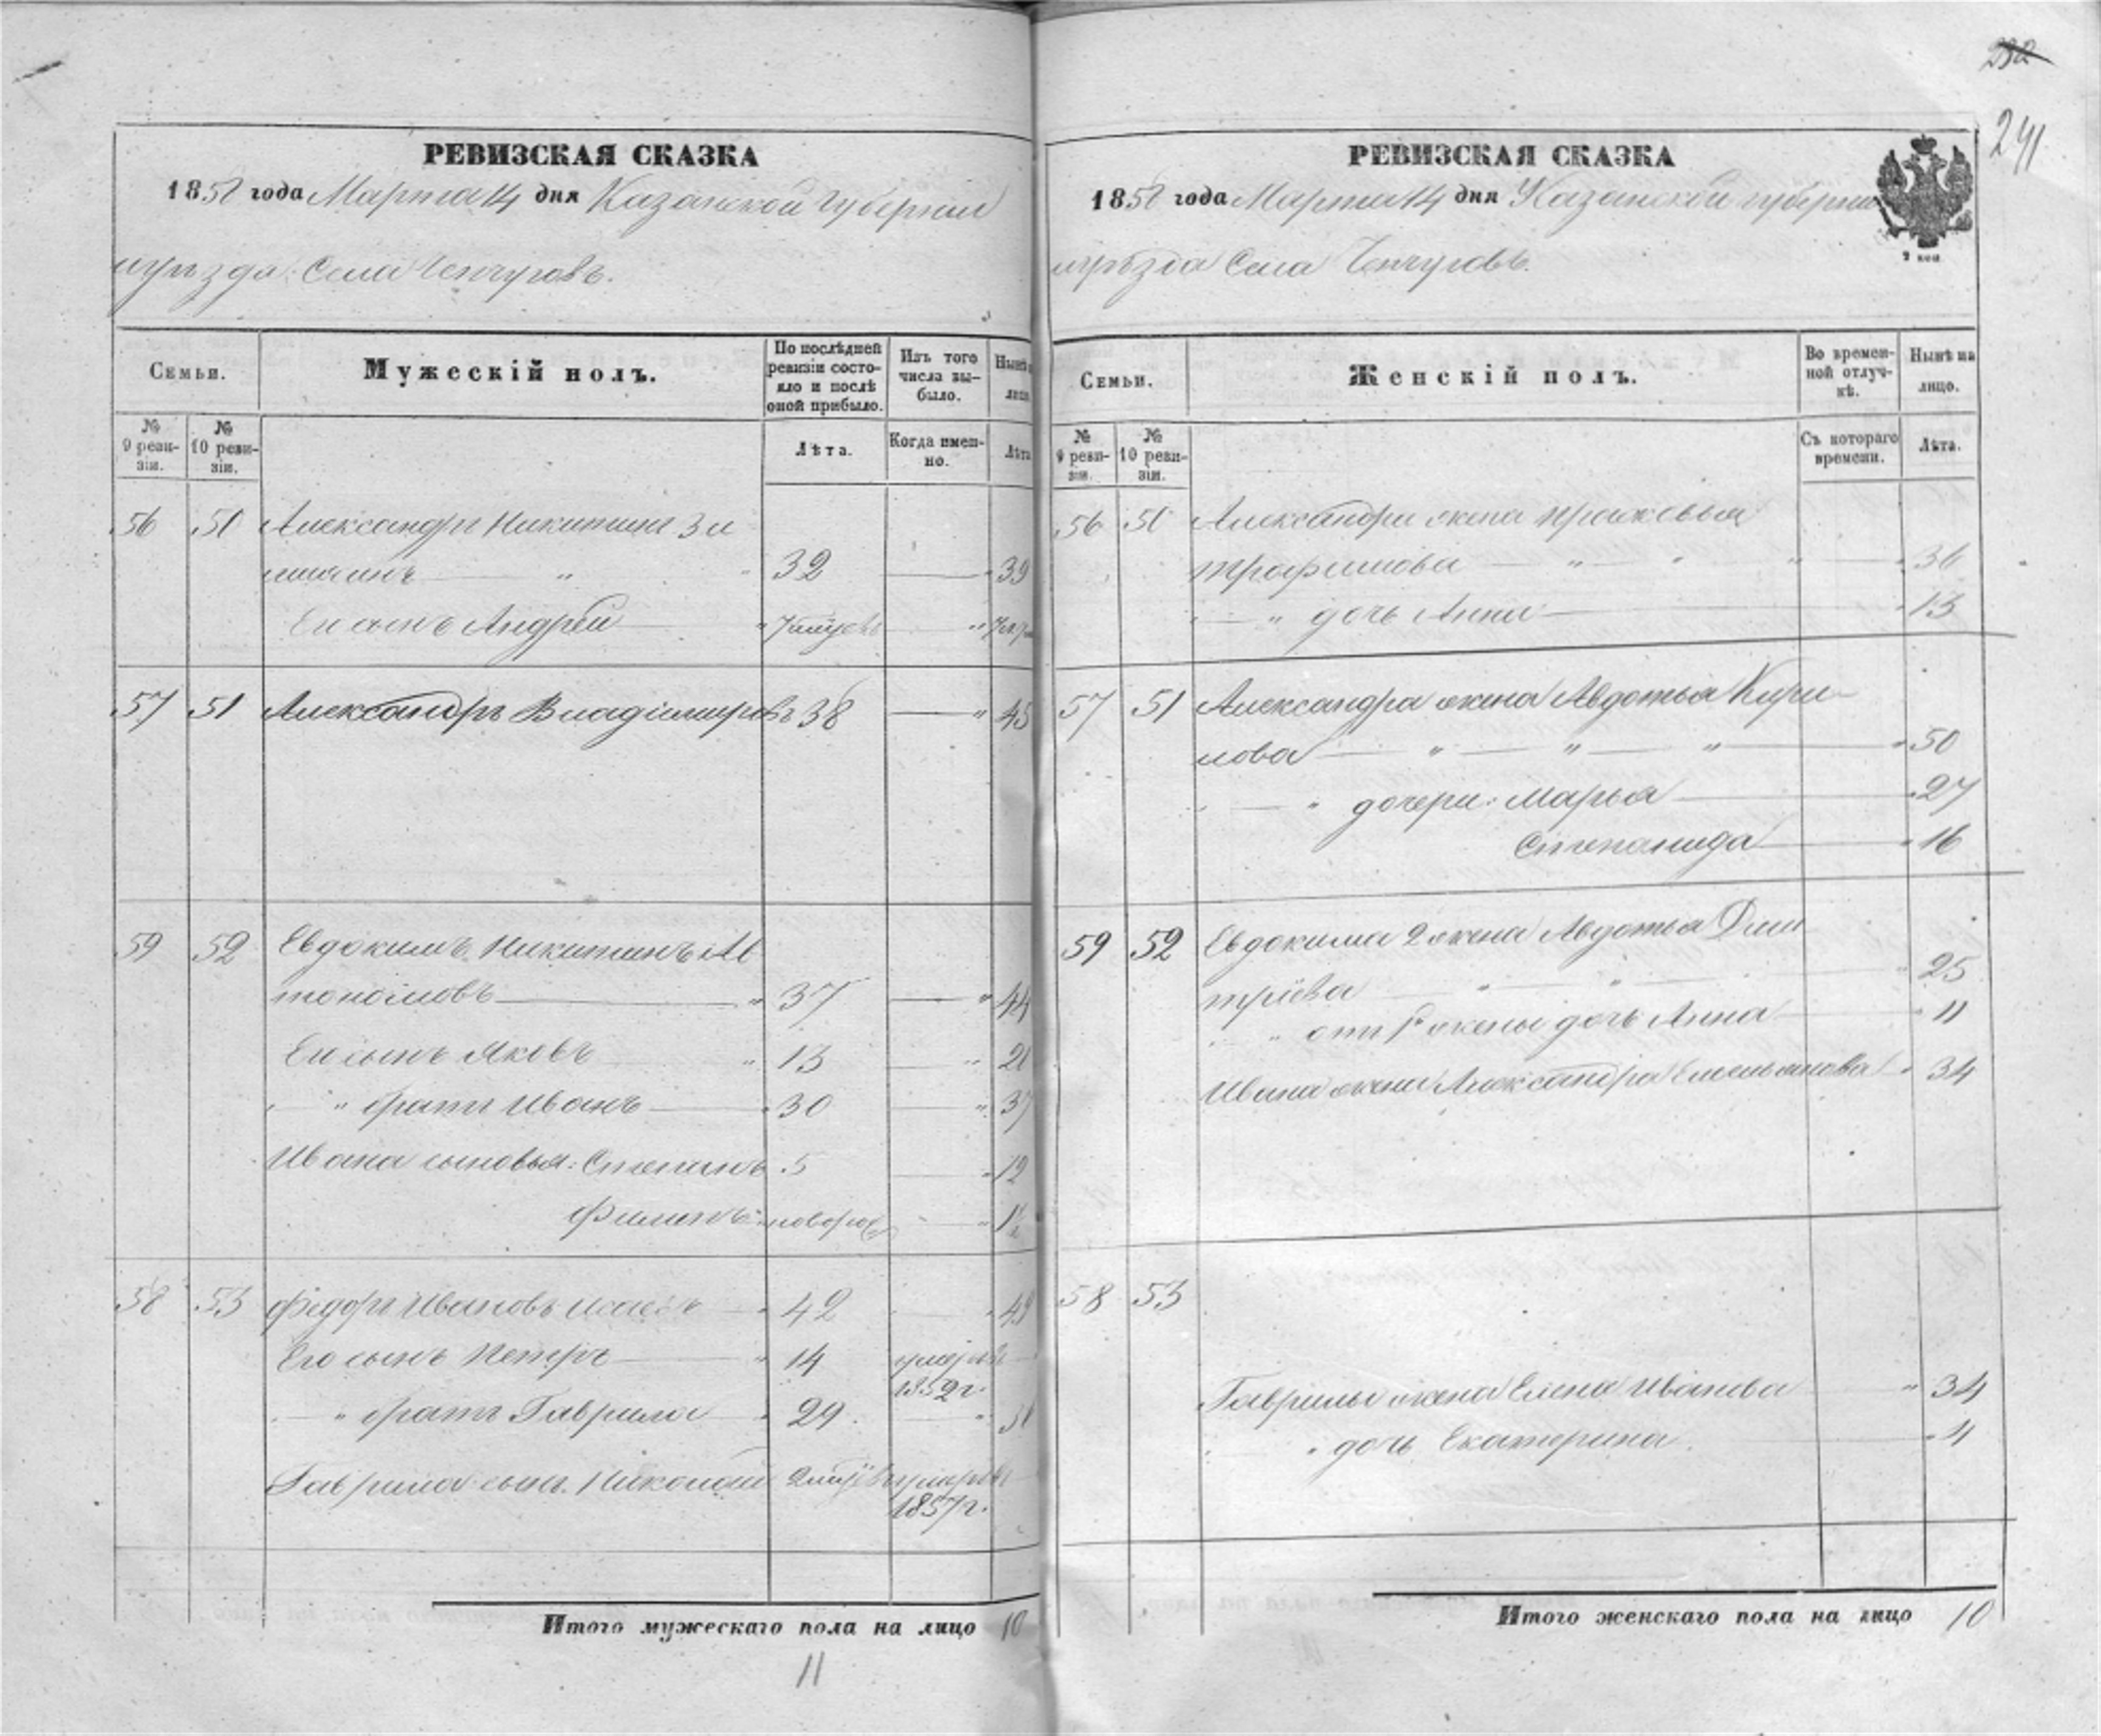 РЕВИЗСКАЯ СКАЗКА
1858 года Марта 14 дня Казанской Губернии
уѣзда Села
Семьи.
Мужескій полъ.
По послѣдней ревизіи состо-
яло и послѣ
оной прибыло.
Изъ того
числа вы-
было.
Нынѣ
лицо
№
9 реви-
зіи.
№
10 реви-
зіи.
Лѣта.
Когда имен-
но.
Лѣта
56 50 Александръ Никитинъ
32 39
Его сынъ Андрей
57 51 Александръ Владиміровъ 38 45
59 52 Евдокимъ Никитинъ Ав
тономовъ 37 44
Его сынъ Яковъ 13 20
" братъ Иванъ 30 37
Ивана сыновья: Степанъ 5 12
Филипъ новорож
58 53 Федоръ Ивановъ Исаевъ 42 49
Его сынъ Петръ 14 умеръ въ
1852 г.
" братъ Гаврила 29
Гаврила сынъ Николай
1857 г.
Итого мужескаго пола на лицо 10
11
232
241
РЕВИЗСКАЯ СКАЗКА
1858 года Марта 14 дня Казанской губерніи
2 коп
уѣзда Села
Семьи.
Женскій полъ.
Во времен-
ной отлуч-
кѣ.
Нынѣ на
лицо.
№
9 реви-
зіи.
№
10 реви-
зіи.
Съ котораго
времени.
Лѣта.
56 50 Александра жена Прасковья
Трафимова 36
" дочь Анна 13
57 51 Александра жена Авдотья Кири-
лова 50
" дочери: Марья 27
Степанида 16
59 52 Евдокима 2 жена Авдотья Дми
тріева 25
" отъ 1й жены дочь Анна 11
Ивана жена Александра Емельянова 34
58 53
Гаврилы жена Елена Иванова 34
" дочь Екатерина 4
Итого женскаго пола на лицо 10